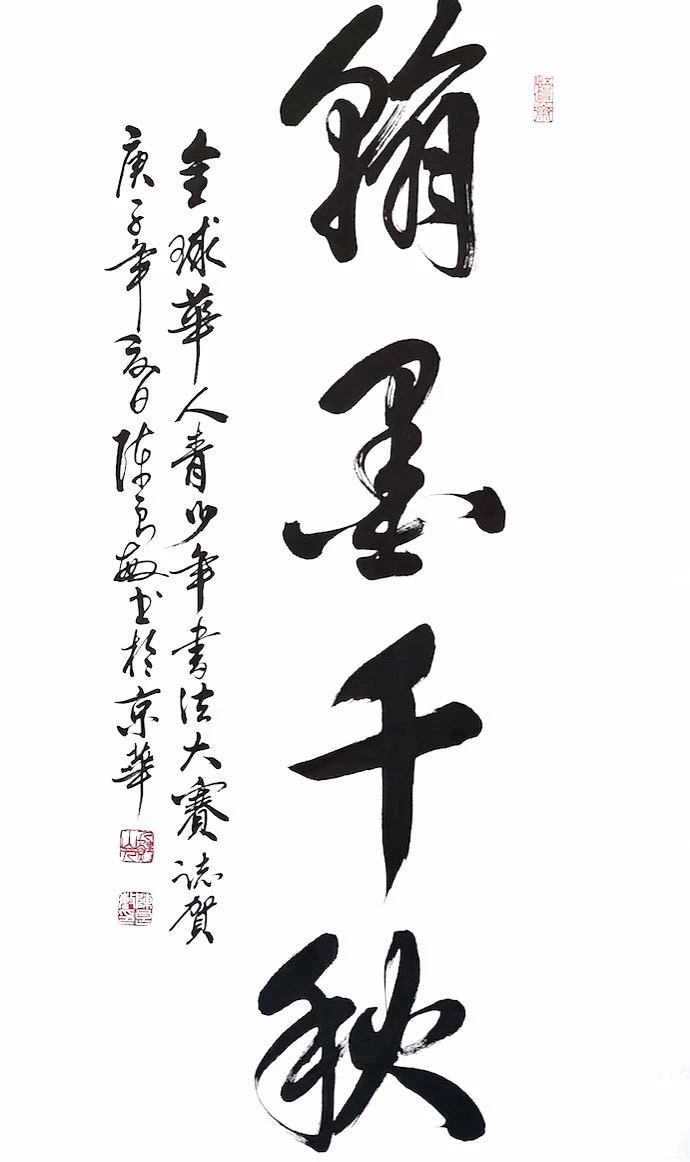 翰墨千秋
全球華人青少年書法大賽誌賀
庚子年夏日陳 敏书於京華